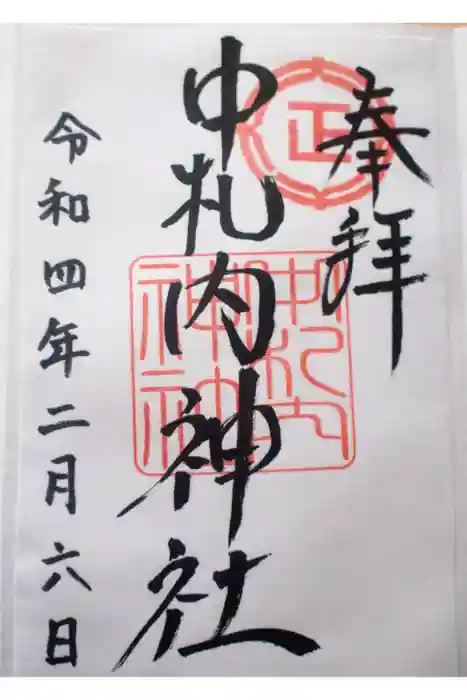 奉拝
正
中札内神社
中札内
神社
令和四年二月六日